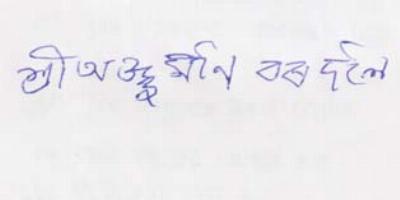 শ্ৰী অঙ্কুমণি বৰদলৈ